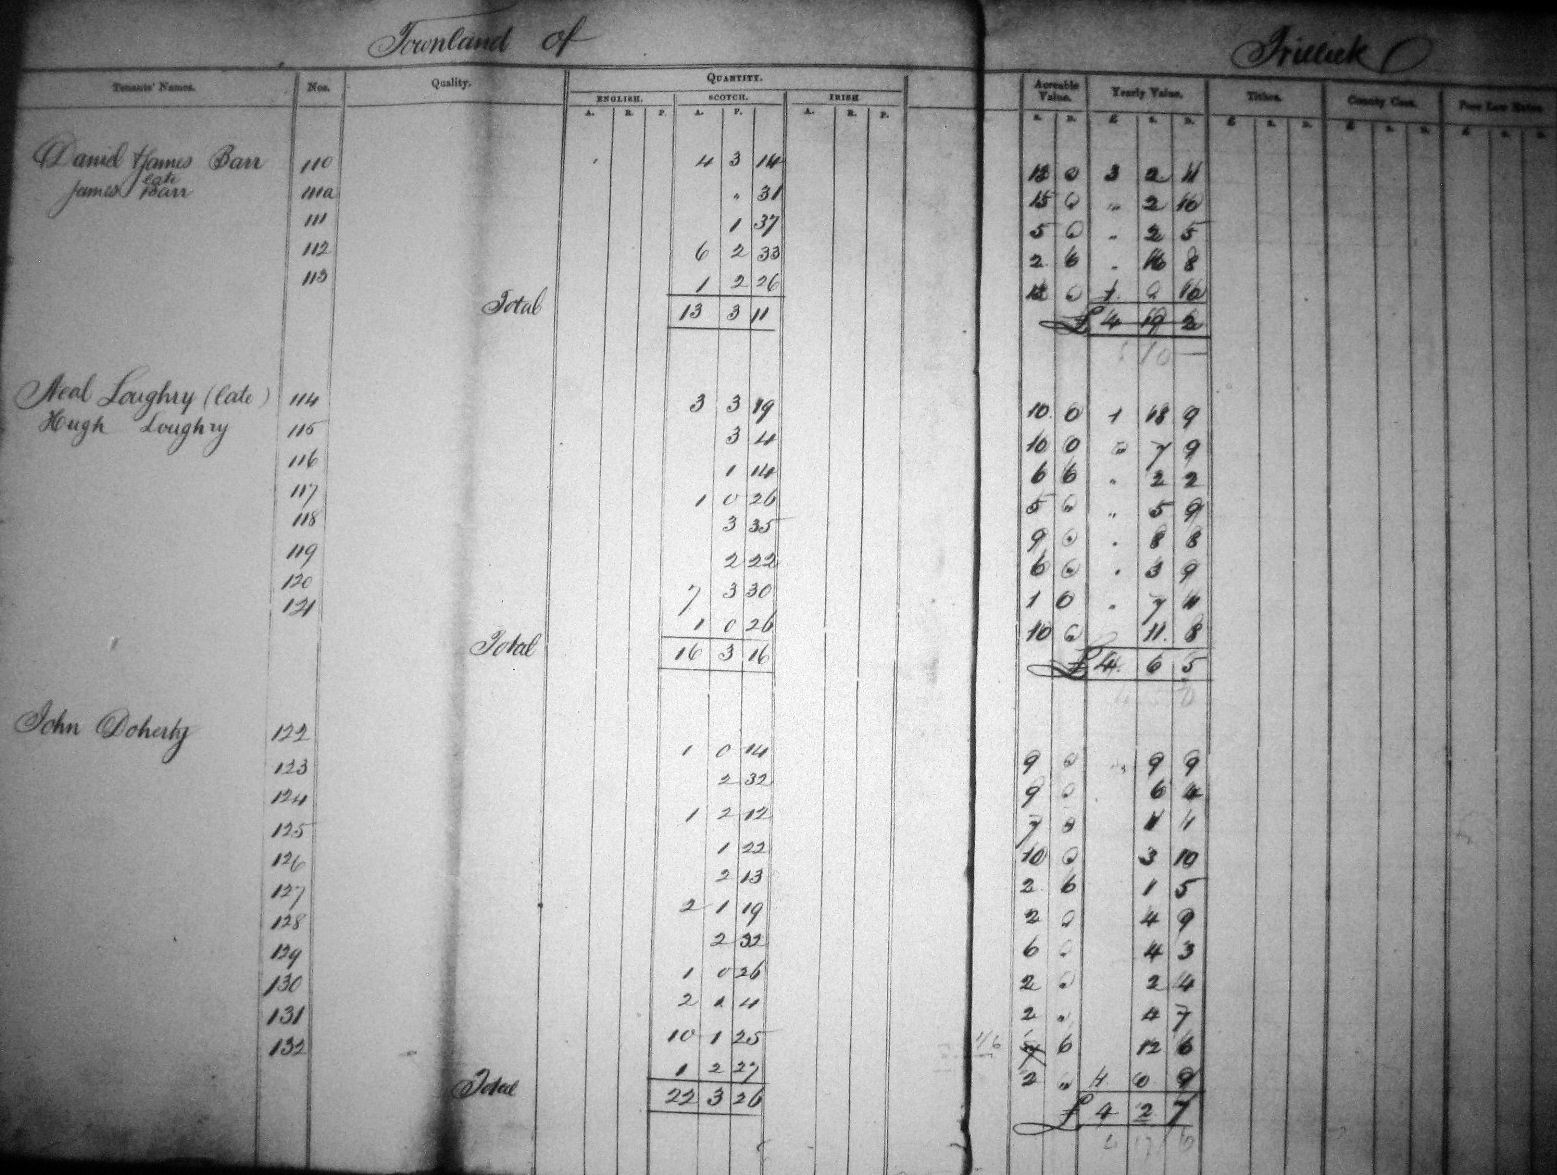 Townland of Trillick
Tenants' Names. Nos. Quality. QUANTITY. Acreable Value. Yearly Value. Tithes. County Cess. Poor Law Rates.
ENGLISH. SCOTCH. IRISH
A. R. P. A. P. A. R. P. S. D. £ S. D. £ S. D. £ S. D. £ S. D.
Daniel & James Barr 110 4 3 14 13 0 3 2 11
late
James Barr 111a " 31 15 0 " 2 10
111 1 37 5 0 " 2 5
112 6 2 33 2 6 " 16 8
113 1 2 26 0 10
Total 13 3 11 £ 4 19 2
10 —
Neal Loughry (late) 114 3 3 19 10 0 1 18 9
Hugh Loughry 115 3 4 10 0 " 7 9
116 1 14 6 6 " 2 2
117 1 0 26 5 0 " 5 9
118 3 35 9 0 " 8 8
119 2 22 6 0 " 3 9
120 7 3 30 1 0 " 7 11
121 1 0 26 10 0 11 8
Total 16 3 16 £ 4 6 5
John Doherty 122 1 0 14 9 0 9 9
123 2 32 9 0 6 4
124 1 2 12 7 0 11 4
125 1 22 10 0 3 10
126 2 13 2 6 1 5
127 2 1 19 2 0 4 9
128 2 32 6 0 4 3
129 1 0 26 2 0 2 4
130 2 1 4 2 " 4 7
131 10 1 25 4/6 6 12 6
132 1 2 27 2 " 0 9
Total 22 3 26 £ 4 2 7